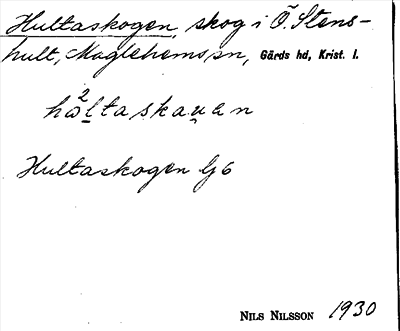 Hultaskogen, skog i Ö. Stens-
hult, Maglehems sn, Gärds hd, Krist. l.
Hultaskogen G6
NILS NILSSON 1930